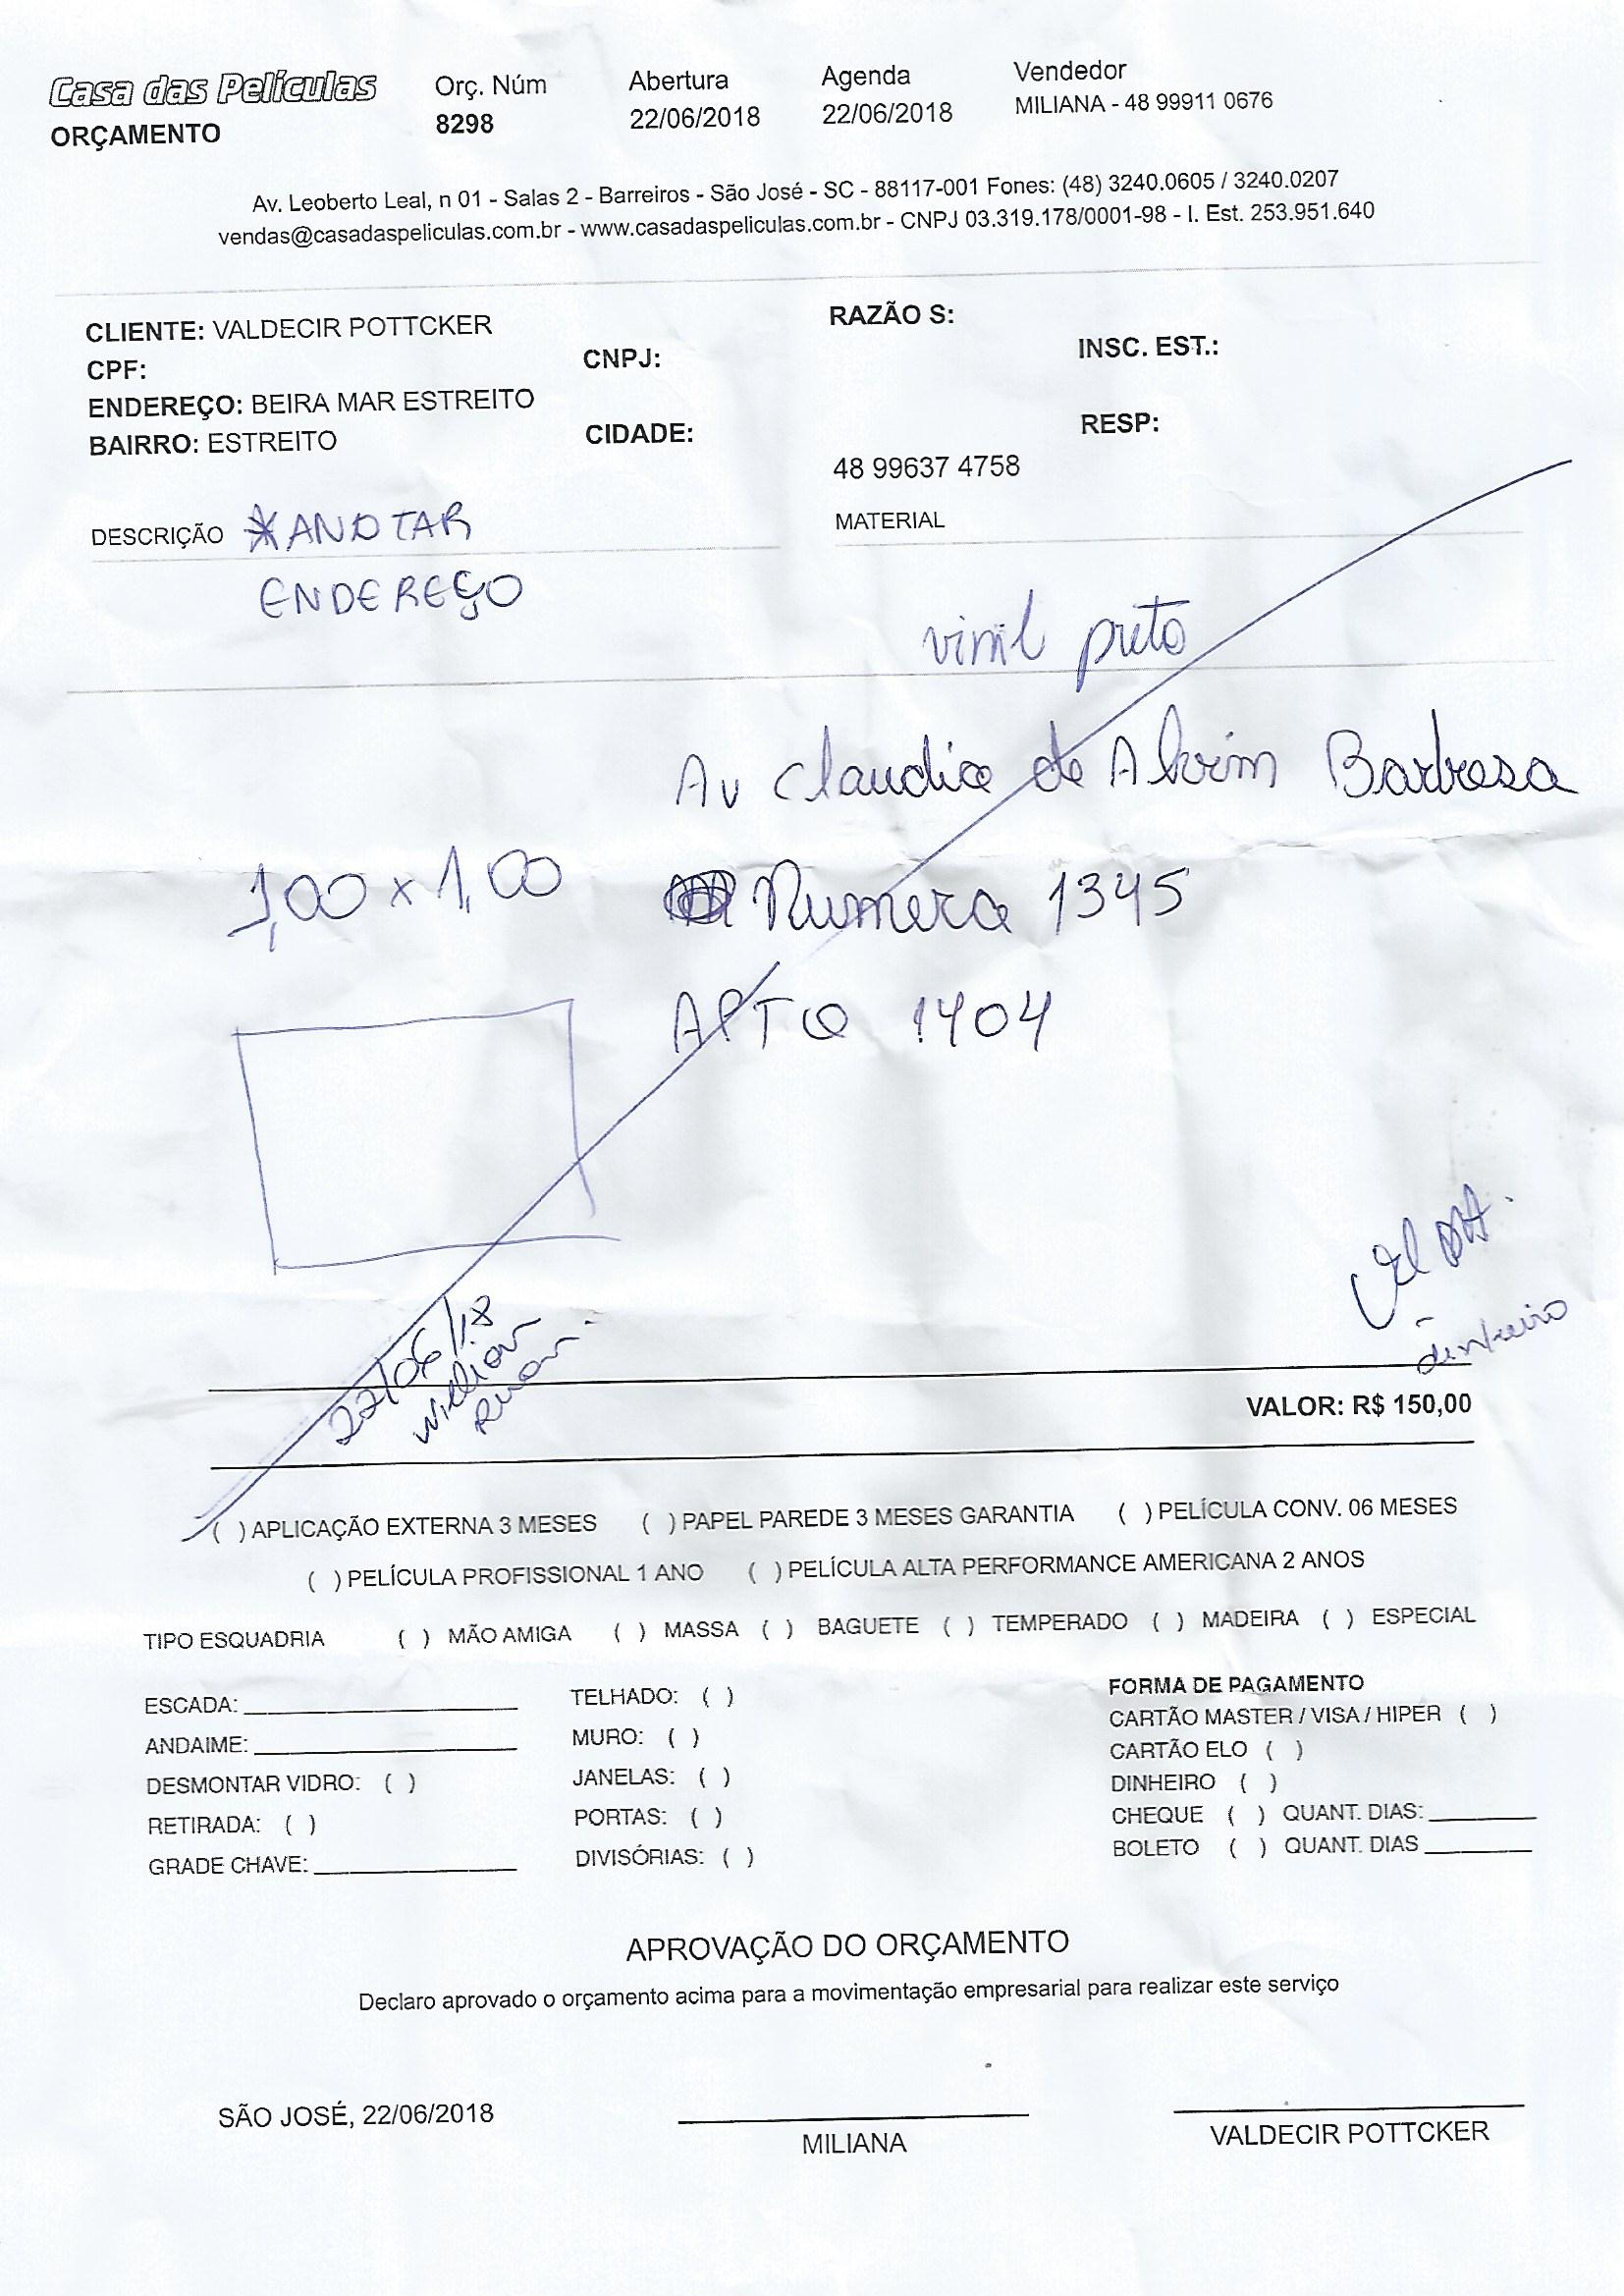 Casa das Películas
ORÇAMENTO
Orç. Núm
8298
Abertura
22/06/2018
Agenda
22/06/2018
Vendedor
MILIANA - 48 99911 0676
Av. Leoberto Leal, n 01 - Salas 2 - Barreiros - São José - SC - 88117-001 Fones: (48) 3240.0605 / 3240.0207
vendas@casadaspeliculas.com.br - www.casadaspeliculas.com.br - CNPJ 03.319.178/0001-98 - I. Est. 253.951.640
CLIENTE: VALDECIR POTTCKER
RAZÃO S:
CPF:
CNPJ:
INSC. EST.:
ENDEREÇO: BEIRA MAR ESTREITO
BAIRRO: ESTREITO
CIDADE:
RESP:
48 99637 4758
DESCRIÇÃO *ANOTAR
ENDEREÇO
MATERIAL
vinil preto
Av Claudio de Alvim Barbosa
1,00 x 1,00
Numero 1345
APTO 1404
22/06/18
dinheiro
VALOR: R$ 150,00
( ) APLICAÇÃO EXTERNA 3 MESES ( ) PAPEL PAREDE 3 MESES GARANTIA ( ) PELÍCULA CONV. 06 MESES
( ) PELÍCULA PROFISSIONAL 1 ANO ( ) PELÍCULA ALTA PERFORMANCE AMERICANA 2 ANOS
TIPO ESQUADRIA ( ) MÃO AMIGA ( ) MASSA ( ) BAGUETE ( ) TEMPERADO ( ) MADEIRA ( ) ESPECIAL
ESCADA:
ANDAIME:
DESMONTAR VIDRO: ( )
RETIRADA: ( )
GRADE CHAVE:
TELHADO: ( )
MURO: ( )
JANELAS: ( )
PORTAS: ( )
DIVISÓRIAS: ( )
FORMA DE PAGAMENTO
CARTÃO MASTER / VISA / HIPER ( )
CARTÃO ELO ( )
DINHEIRO ( )
CHEQUE ( ) QUANT. DIAS:
BOLETO ( ) QUANT. DIAS
APROVAÇÃO DO ORÇAMENTO
Declaro aprovado o orçamento acima para a movimentação empresarial para realizar este serviço
SÃO JOSÉ, 22/06/2018
MILIANA
VALDECIR POTTCKER